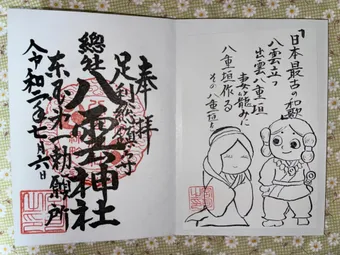 「日本最古の和歌」
八雲立つ
出雲八重垣
妻籠みに
八重垣作る
その八重垣を
奉拝
足利総鎮守
總社
八雲神社
東国第一勅願所
令和二年七月六日